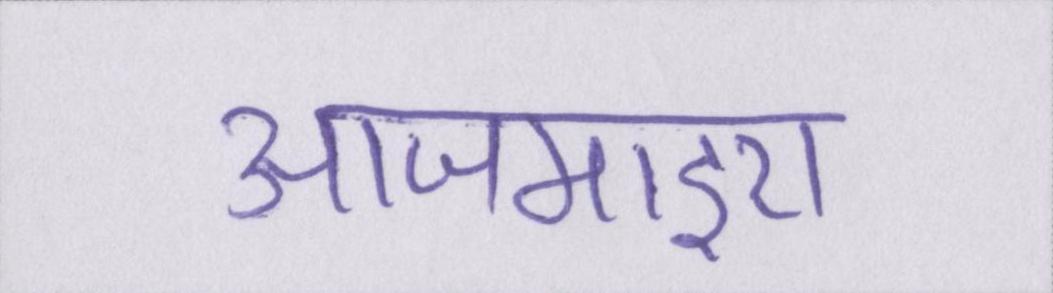 आजमाइश